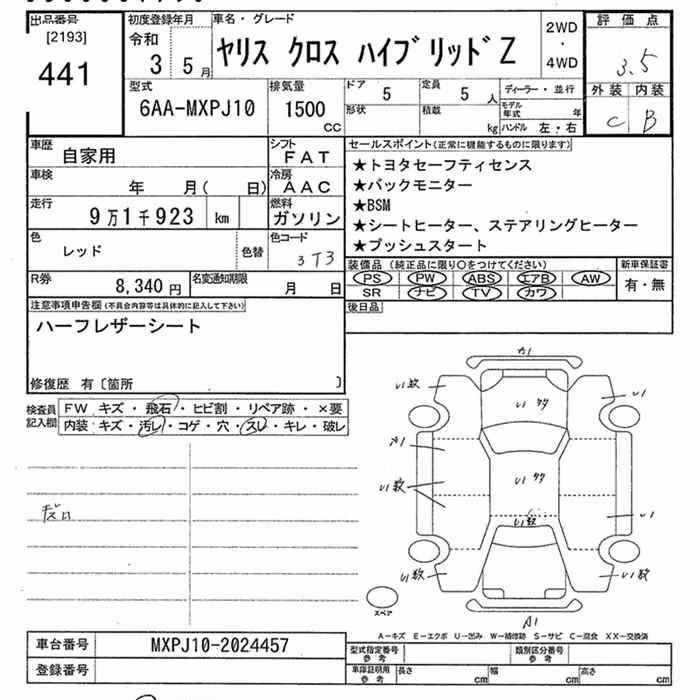 出品番号
[2193]
441
初度登録年月
令和
3 5月
車名・グレード
ヤリス クロス ハイブリッドZ
2WD
・
4WD
評価点
3.5
外装 内装
C B
型式
6AA-MXPJ10
排気量
1500
CC
ドア
5
定員
5 人
形状
積載
kg
ディーラー・並行
モデル年式 年
ハンドル 左・右
車歴
自家用
シフト
FAT
車検
年 月( 日)
冷房
AAC
走行
9万1千923 km
燃料
ガソリン
色
レッド
色替
色コード
3T3
R券
8,340 円
名変通知期限
月 日
セールスポイント(正常に機能するものに限ります)
★トヨタセーフティセンス
★バックモニター
★BSM
★シートヒーター、ステアリングヒーター
★プッシュスタート
装備品(純正品に限り○をつけてください)
PS PW ABS エアB AW
SR ナビ TV カワ
新車保証書
有・無
後日品
注意事項申告欄(不具合内容等は具体的に記入して下さい)
ハーフレザーシート
修復歴 有〔箇所 〕
検査員
記入欄
FW キズ・飛石・ヒビ割・リペア跡・×要
内装 キズ・汚レ・コゲ・穴・スレ・キレ・破レ
A1
U1数
U1
A1
U1数
U1
U1数
U1数
U1数
A1
スペア
A-キズ E-エクボ U-凹み W-補修跡 S-サビ C-腐食 XX-交換済
車台番号
MXPJ10-2024457
登録番号
型式指定番号
参考
類別区分番号
参考
車庫証明用
参考
長さ cm
幅 cm
高さ cm